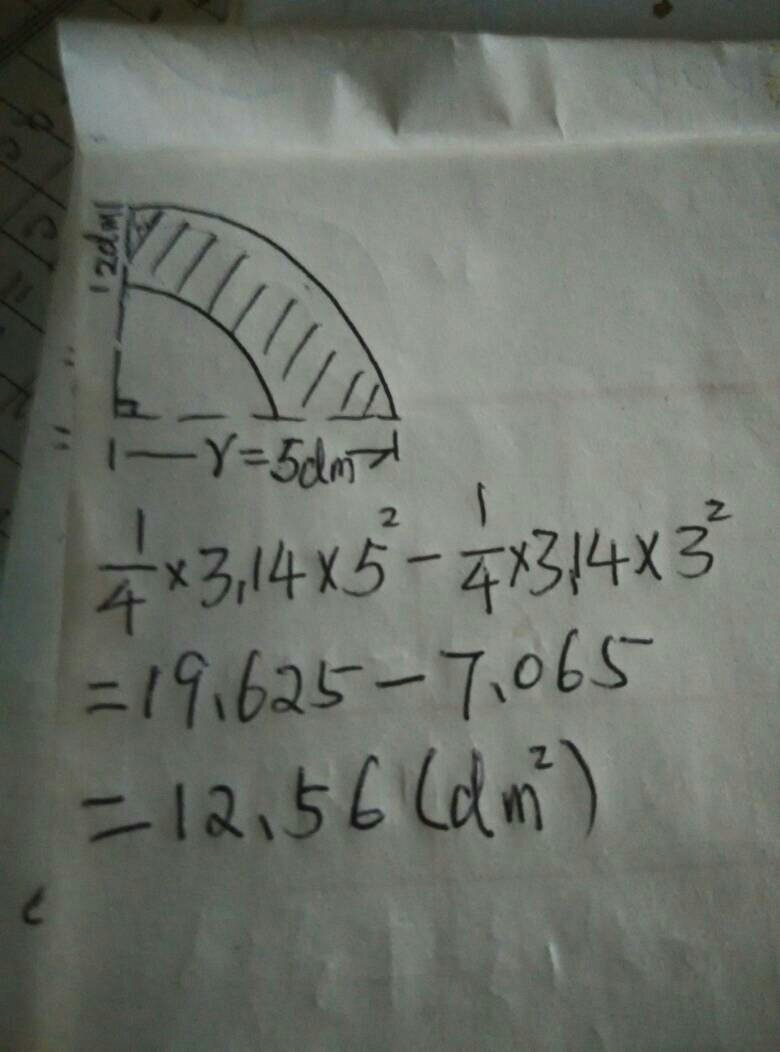 2dm
r=5dm
1/4×3.14×5²-1/4×3.14×3²
=19.625-7.065
=12.56(dm²)